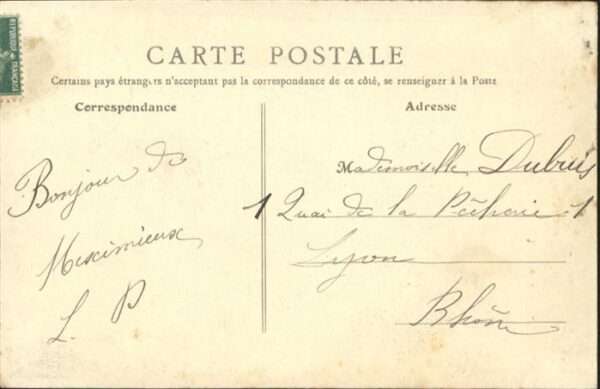 CARTE POSTALE
Certains pays étrangers n'acceptant pas la correspondance de ce côté, se renseigner à la Poste
Correspondance
Adresse
Bonjour de
Meximieux
L. D
Mademoiselle Dubuis
1 Quai de la Pêcherie 1
Lyon
Rhône